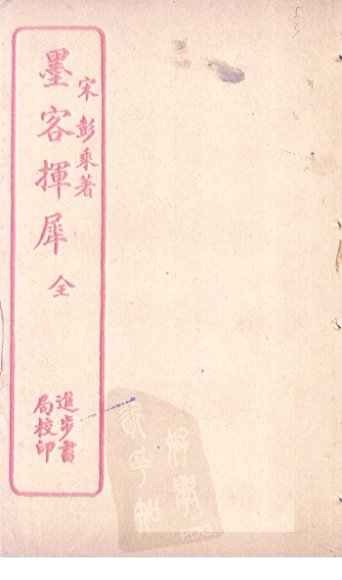 宋 彭乘著
墨客揮犀 全
進步書
局校印